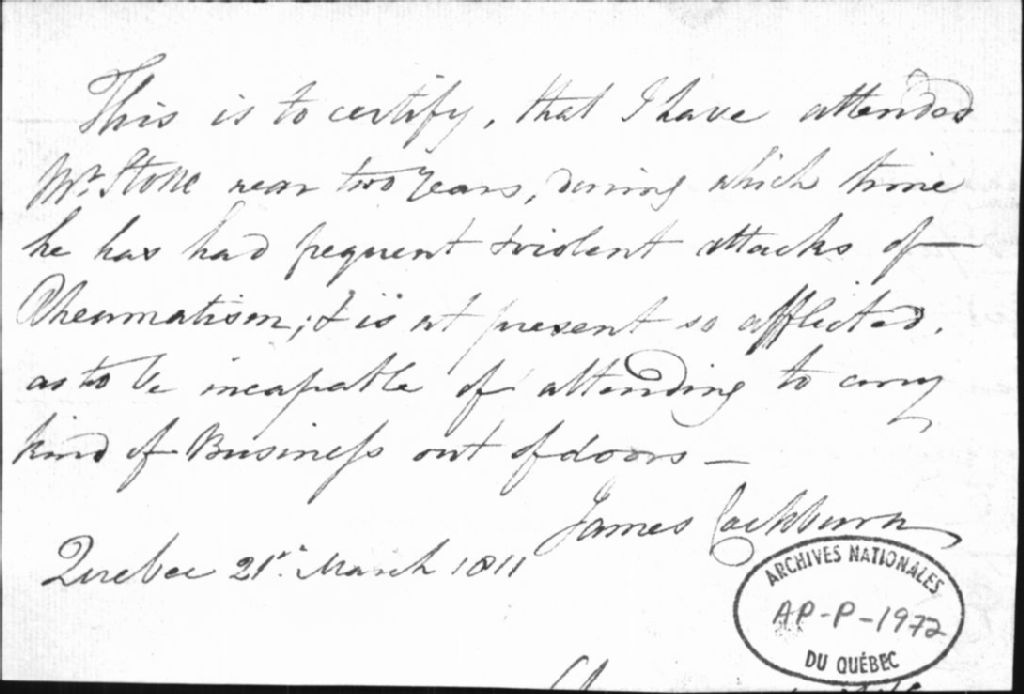 This is to certify, that I have attended
Mr. Stone near two Years, during which time
he has had frequent & violent attacks of
Rheumatism; & is at present so afflicted,
as to be incapable of attending to any
kind of Business out of doors —
James Cockburn
Quebec 21st. March 1811
ARCHIVES NATIONALES
AP-P-1972
DU QUÉBEC